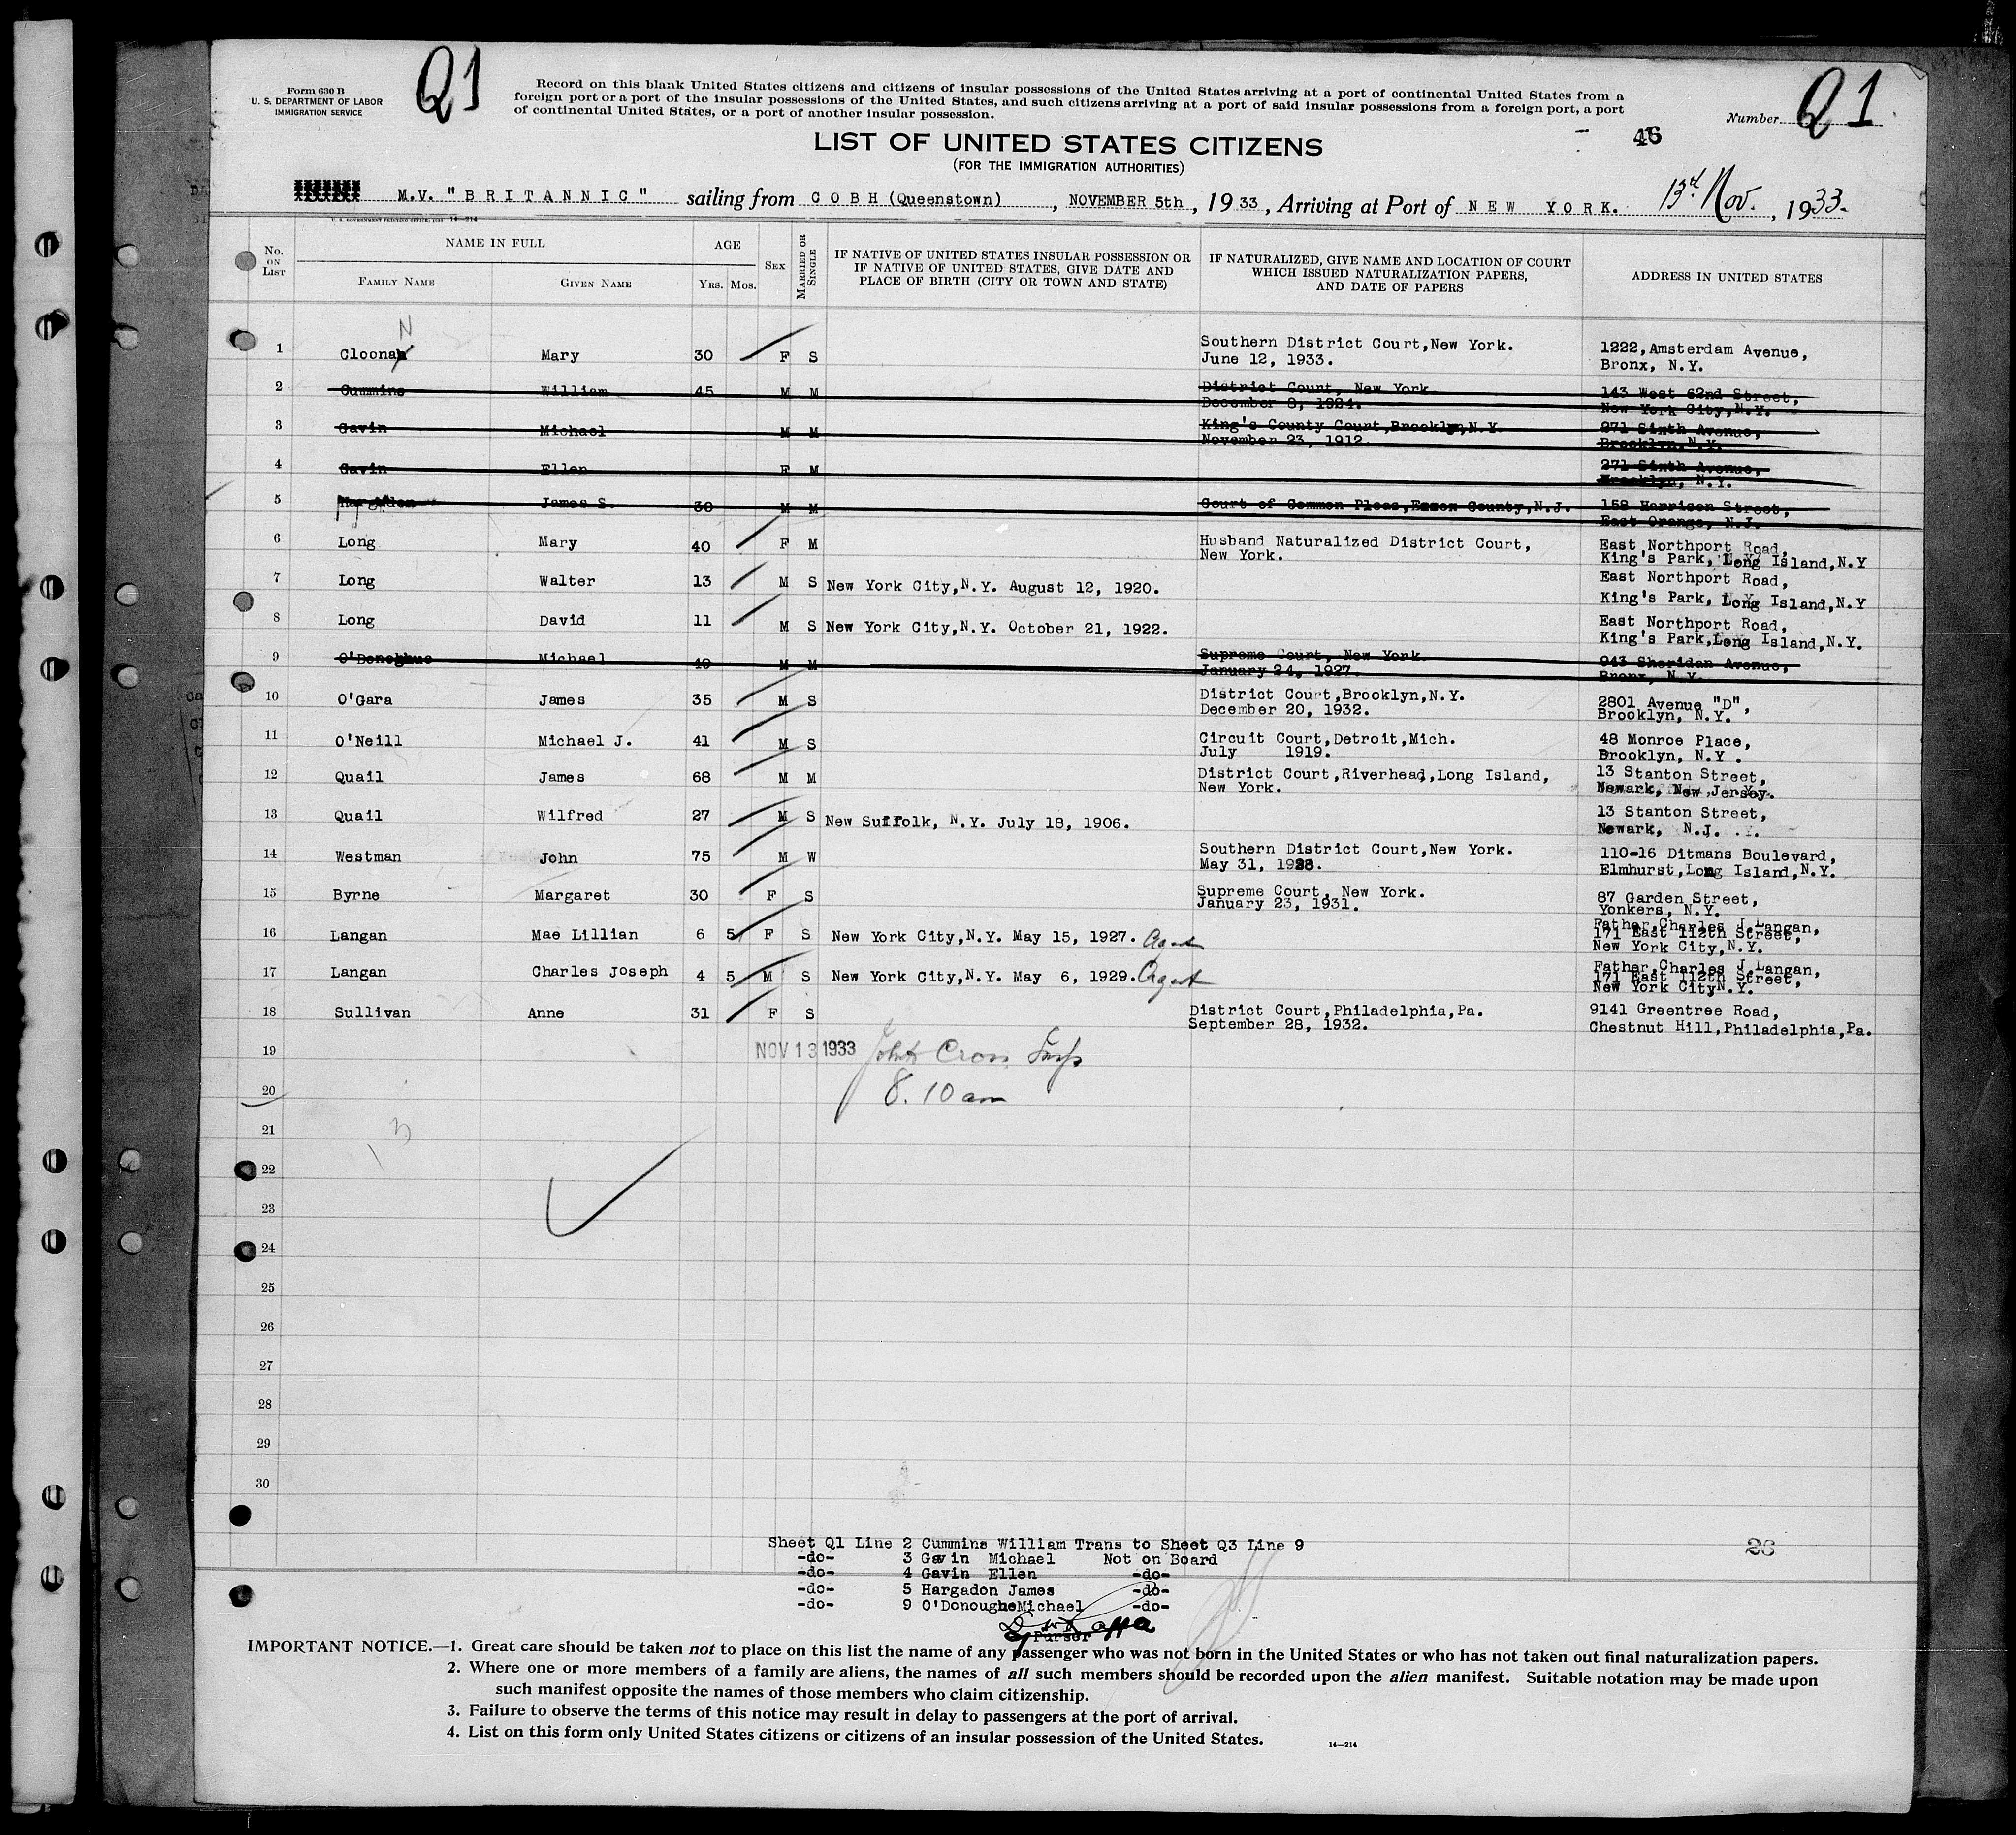 Form 630 B
U. S. DEPARTMENT OF LABOR
IMMIGRATION SERVICE
Q1
Record on this blank United States citizens and citizens of insular possessions of the United States arriving at a port of continental United States from a
foreign port or a port of the insular possessions of the United States, and such citizens arriving at a port of said insular possessions from a foreign port, a port
of continental United States, or a port of another insular possession.
Number Q1
46
LIST OF UNITED STATES CITIZENS
(FOR THE IMMIGRATION AUTHORITIES)
M.V. "BRITANNIC" sailing from COBH (Queenstown), NOVEMBER 5th, 1933, Arriving at Port of NEW YORK. 13th Nov., 1933.
U. S. GOVERNMENT PRINTING OFFICE 14—214
No. ON LIST
NAME IN FULL
FAMILY NAME GIVEN NAME
AGE
YRS. MOS.
SEX
MARRIED OR SINGLE
IF NATIVE OF UNITED STATES INSULAR POSSESSION OR
IF NATIVE OF UNITED STATES, GIVE DATE AND
PLACE OF BIRTH (CITY OR TOWN AND STATE)
IF NATURALIZED, GIVE NAME AND LOCATION OF COURT
WHICH ISSUED NATURALIZATION PAPERS,
AND DATE OF PAPERS
ADDRESS IN UNITED STATES
N
1 Cloonan Mary 30 F S Southern District Court,New York. 1222,Amsterdam Avenue,
June 12, 1933. Bronx, N.Y.
2 Cummins William 45 M M District Court, New York. 143 West 62nd Street,
December 8, 1924. New York City,N.Y.
3 Gavin Michael M M King's County Court,Brooklyn,N.Y. 271 Sixth Avenue,
November 23, 1912. Brooklyn,N.Y.
4 Gavin Ellen F M 271 Sixth Avenue,
Brooklyn, N.Y.
5 Hargadon James S. 38 M M Court of Common Pleas,Essex County,N.J. 158 Harrison Street,
East Orange, N.J.
6 Long Mary 40 F M Husband Naturalized District Court, East Northport Road,
New York. King's Park, Long Island,N.Y
7 Long Walter 13 M S New York City,N.Y. August 12, 1920. East Northport Road,
King's Park, Long Island,N.Y
8 Long David 11 M S New York City,N.Y. October 21, 1922. East Northport Road,
King's Park,Long Island,N.Y.
9 O'Donoghue Michael 49 M M Supreme Court, New York. 943 Sheridan Avenue,
January 24, 1927. Bronx, N.Y.
10 O'Gara James 35 M S District Court,Brooklyn,N.Y. 2801 Avenue "D",
December 20, 1932. Brooklyn, N.Y.
11 O'Neill Michael J. 41 M S Circuit Court,Detroit,Mich. 48 Monroe Place,
July 1919. Brooklyn, N.Y.
12 Quail James 68 M M District Court,Riverhead,Long Island, 13 Stanton Street,
New York. Newark, New Jersey.
13 Quail Wilfred 27 M S New Suffolk, N.Y. July 18, 1906. 13 Stanton Street,
Newark, N.J.
14 Westman John 75 M W Southern District Court,New York. 110-16 Ditmans Boulevard,
May 31, 1928. Elmhurst,Long Island,N.Y.
15 Byrne Margaret 30 F S Supreme Court, New York. 87 Garden Street,
January 23, 1931. Yonkers, N.Y.
16 Langan Mae Lillian 6 5 F S New York City,N.Y. May 15, 1927. Father,Charles J.Langan,
171 East 112th Street,
New York City,N.Y.
17 Langan Charles Joseph 4 5 M S New York City,N.Y. May 6, 1929. Father,Charles J.Langan,
171 East 112th Street,
New York CityN.Y.
18 Sullivan Anne 31 F S District Court,Philadelphia,Pa. 9141 Greentree Road,
September 28, 1932. Chestnut Hill,Philadelphia,Pa.
19 NOV 13 1933 Cross Insp
20 8.10 am
21
22
23
24
25
26
27
28
29
30
Sheet Q1 Line 2 Cummins William Trans to Sheet Q3 Line 9
-do- 3 Gavin Michael Not on Board
-do- 4 Gavin Ellen -do-
-do- 5 Hargadon James -do-
-do- 9 O'DonougheMichael -do-
Purser
26
IMPORTANT NOTICE.—1. Great care should be taken not to place on this list the name of any passenger who was not born in the United States or who has not taken out final naturalization papers.
2. Where one or more members of a family are aliens, the names of all such members should be recorded upon the alien manifest. Suitable notation may be made upon
such manifest opposite the names of those members who claim citizenship.
3. Failure to observe the terms of this notice may result in delay to passengers at the port of arrival.
4. List on this form only United States citizens or citizens of an insular possession of the United States.
14—214